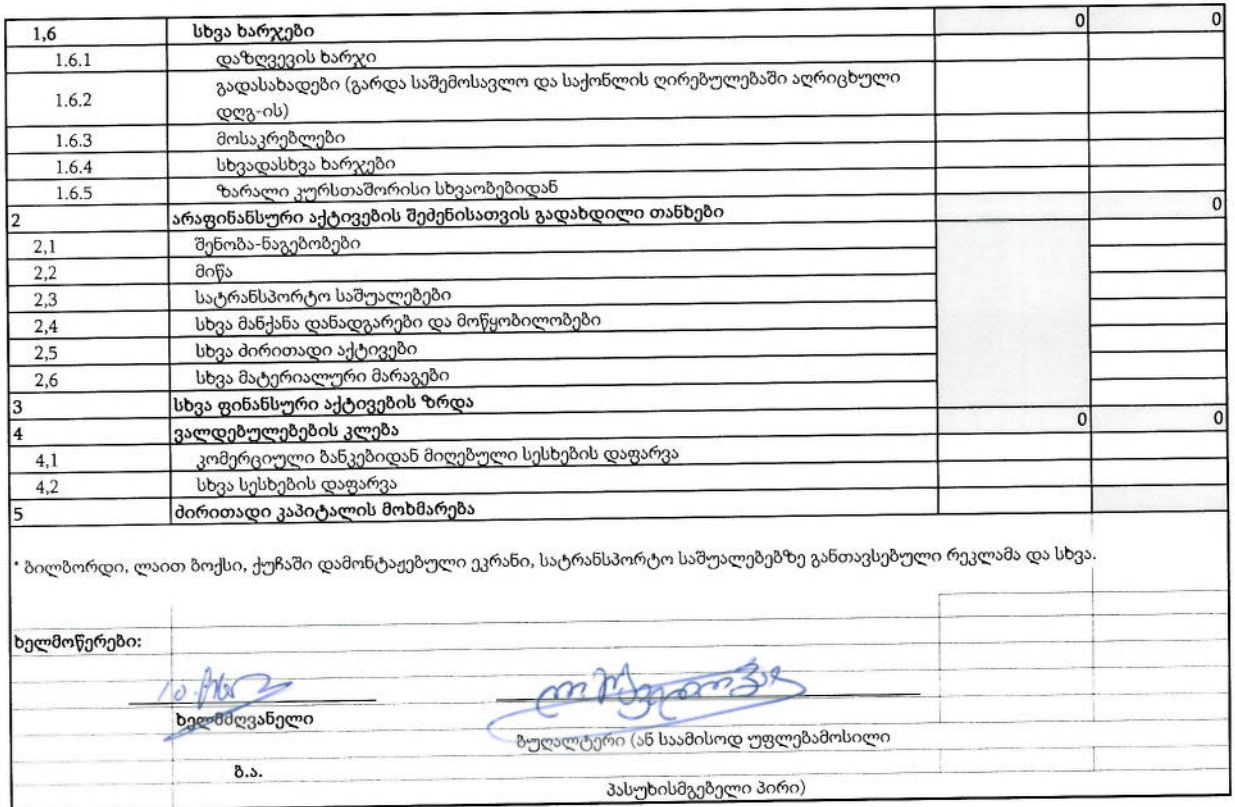 1,6 სხვა ხარჯები 0 0
1.6.1 დაზღვევის ხარჯი
გადასახადები (გარდა საშემოსავლო და საქონლის ღირებულებაში აღრიცხული
1.6.2
დღგ-ის)
1.6.3 მოსაკრებლები
1.6.4 სხვადასხვა ხარჯები
1.6.5 ზარალი კურსთაშორისი სხვაობებიდან
2 არაფინანსური აქტივების შეძენისათვის გადახდილი თანხები 0
2,1 შენობა-ნაგებობები
2,2 მიწა
2,3 სატრანსპორტო საშუალებები
2,4 სხვა მანქანა დანადგარები და მოწყობილობები
2,5 სხვა ძირითადი აქტივები
2,6 სხვა მატერიალური მარაგები
3 სხვა ფინანსური აქტივების ზრდა
4 ვალდებულებების კლება 0 0
4,1 კომერციული ბანკებიდან მიღებული სესხების დაფარვა
4,2 სხვა სესხების დაფარვა
5 ძირითადი კაპიტალის მოხმარება
* ბილბორდი, ლაით ბოქსი, ქუჩაში დამონტაჟებული ეკრანი, სატრანსპორტო საშუალებებზე განთავსებული რეკლამა და სხვა.
ხელმოწერები:
ხელმძღვანელი
ბუღალტერი (ან საამისოდ უფლებამოსილი
ბ.ა.
პასუხისმგებელი პირი)